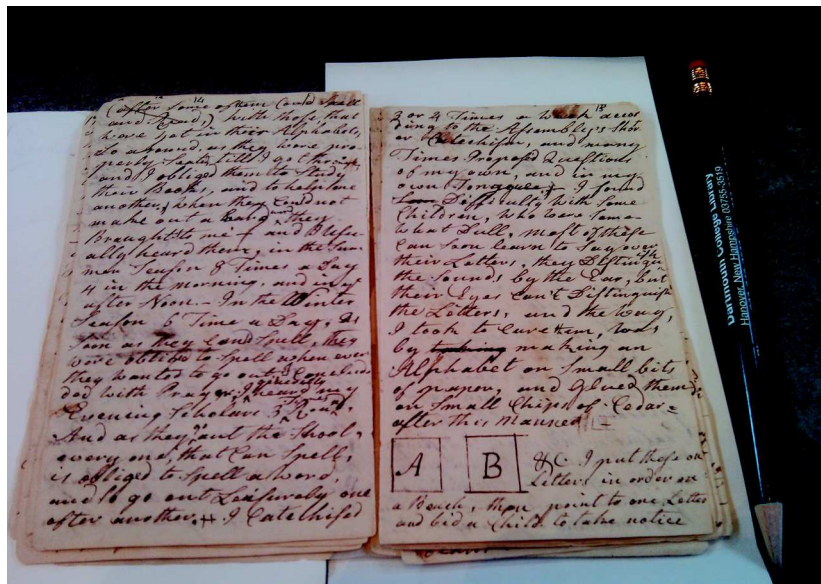 14
(after Some of them Could Spell
and Read,) with those that
were yet in their Alphabets,
So around, as they were pro-
perly Seated till I got thro'
and I obliged them to Study
their Books, and to help one
another, when they could not
make out a hard word they
Brought it to me and I Usu-
ally heard them, in the Sum-
mer Season 8 Times a Day
4 in the morning, and in ye
after Noon.- In the Winter
Season 6 Times a Day, As
Soon as they could Spell, they
were obliged to Spell when ever
they wanted to go out. I conclu-
ded with Prayer, I generally heard my
Evening Scholars 3 Times Round,
And as they out the School,
every one, that Can Spell,
is obliged to Spell a word,
and So go out Leasurely one
after another. I Catechised
15
3 or 4 Times a Week accor
ding to the Assembly's Shor
or Catechism, and many
Times Proposed Questions
of my own, and in my
own Tongue, I found
Difficulty with Some
Children, who were Some
what Dull, most of these
can soon learn to Say over
their Letters, they Distinguish
the Sounds by the Ear, but
their Eyes can't Distinguish
the Letters, and the way,
I took to cure them, was
by making an
Alphabet on Small bits
of paper, and Glued them
on Small Chips of Cedar
after this manner
A B &C. I put these on
Letters in order on
a Bench, then point to one Letter
and bid a Child to take notice
Dartmouth College Library
Hanover, New Hampshire 03755-3519